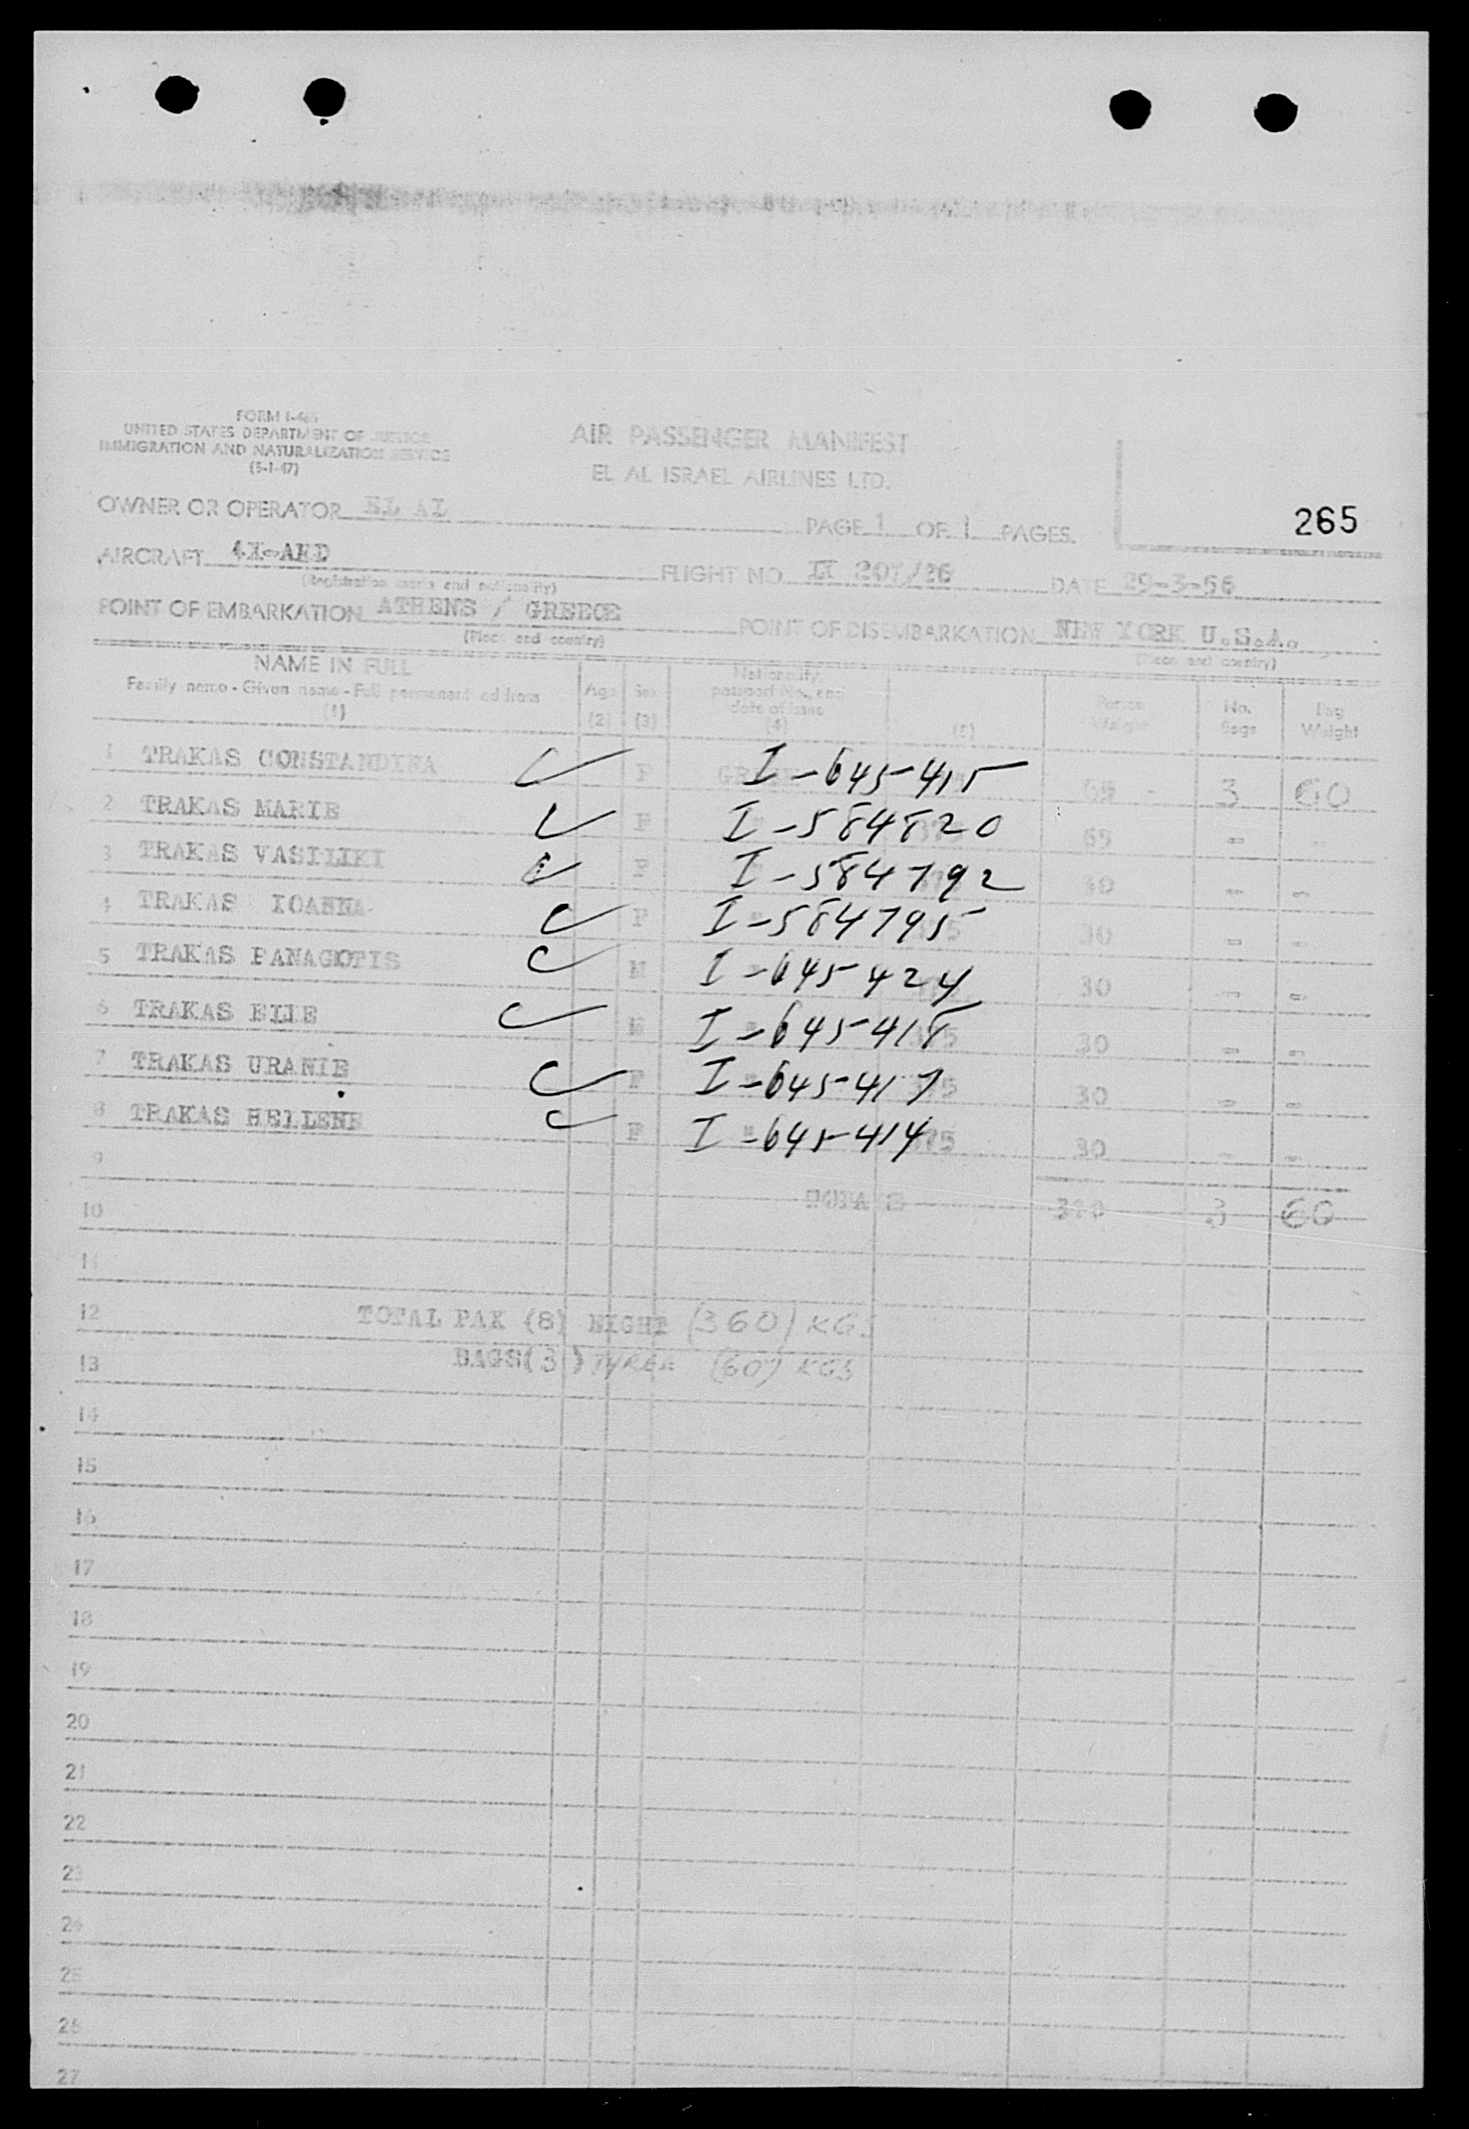 FORM I-466
UNITED STATES DEPARTMENT OF JUSTICE
IMMIGRATION AND NATURALIZATION SERVICE
(5-1-47)
AIR PASSENGER MANIFEST
EL AL ISRAEL AIRLINES LTD.
OWNER OR OPERATOR EL AL PAGE 1 OF 1 PAGES.
265
AIRCRAFT 4X-AED FLIGHT NO. 207/26 DATE 29-3-56
(Registration marks and nationality)
POINT OF EMBARKATION ATHENS / GREECE POINT OF DISEMBARKATION NEW YORK U.S.A.
(Place and country) (Place and country)
NAME IN FULL
Family name - Given name - Full permanent address
(1) Age (2) Sex (3) Nationality, passport No., and date of issue (4) (5) Person Weight No. Bags Bag Weight
1 TRAKAS CONSTANDINA F I-645-415 65 3 60
2 TRAKAS MARIE F I-584820 65 - -
3 TRAKAS VASILIKI F I-584792 30 - -
4 TRAKAS IOANNA F I-584795 30 - -
5 TRAKAS PANAGOTIS M I-645-424 30 - -
6 TRAKAS I-645-418 30 - -
7 TRAKAS URANIE F I-645-417 30 - -
8 TRAKAS HELLENE F I-645-414 30 - -
9
10 3 60
11
12 TOTAL PAX (8) EIGHT (360) KGS
13 BAGS (3) THREE (60) KGS
14
15
16
17
18
19
20
21
22
23
24
25
26
27